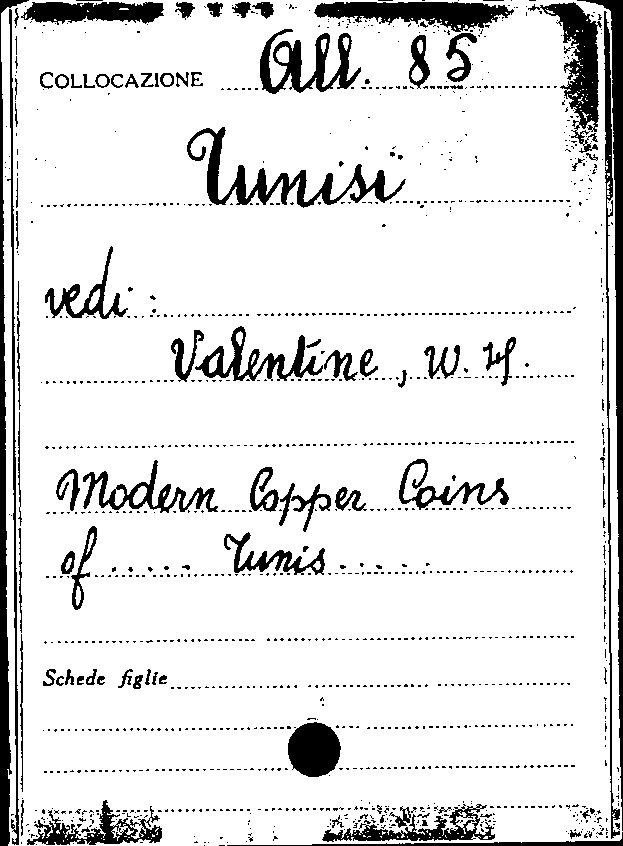 COLLOCAZIONE All. 85
Tunisi
vedi:
Valentine, W. H.
Modern Copper Coins
of ..... Tunis .....
Schede figlie